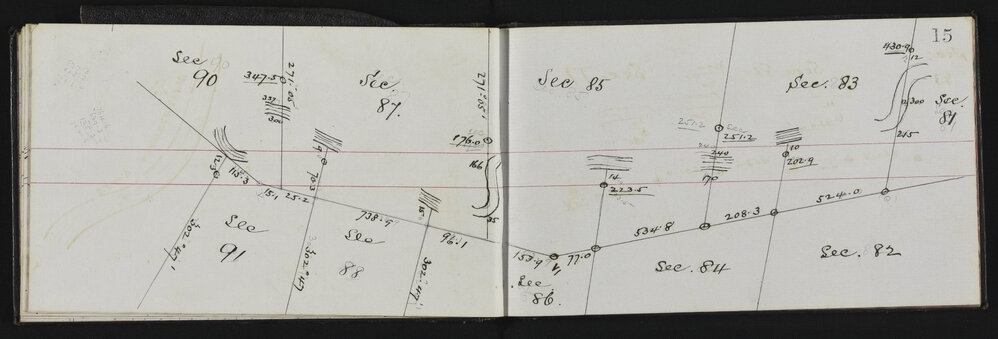 15
Sec
90
347.5
337
300
271°05'
Sec.
87.
271°05'
176.0
166
35
12.5
115.3
9
70.3
15.1
25.2
738.9
15
96.1
302°47'
Sec
91
302°47
Sec
88
302°47'
Sec 85
251.2
251.2
240
170
14
223.5
Sec. 83
10
202.9
430.90
12
300
215
Sec.
81
153.9
77.0
534.8
208.3
524.0
Sec
86.
Sec. 84
Sec. 82